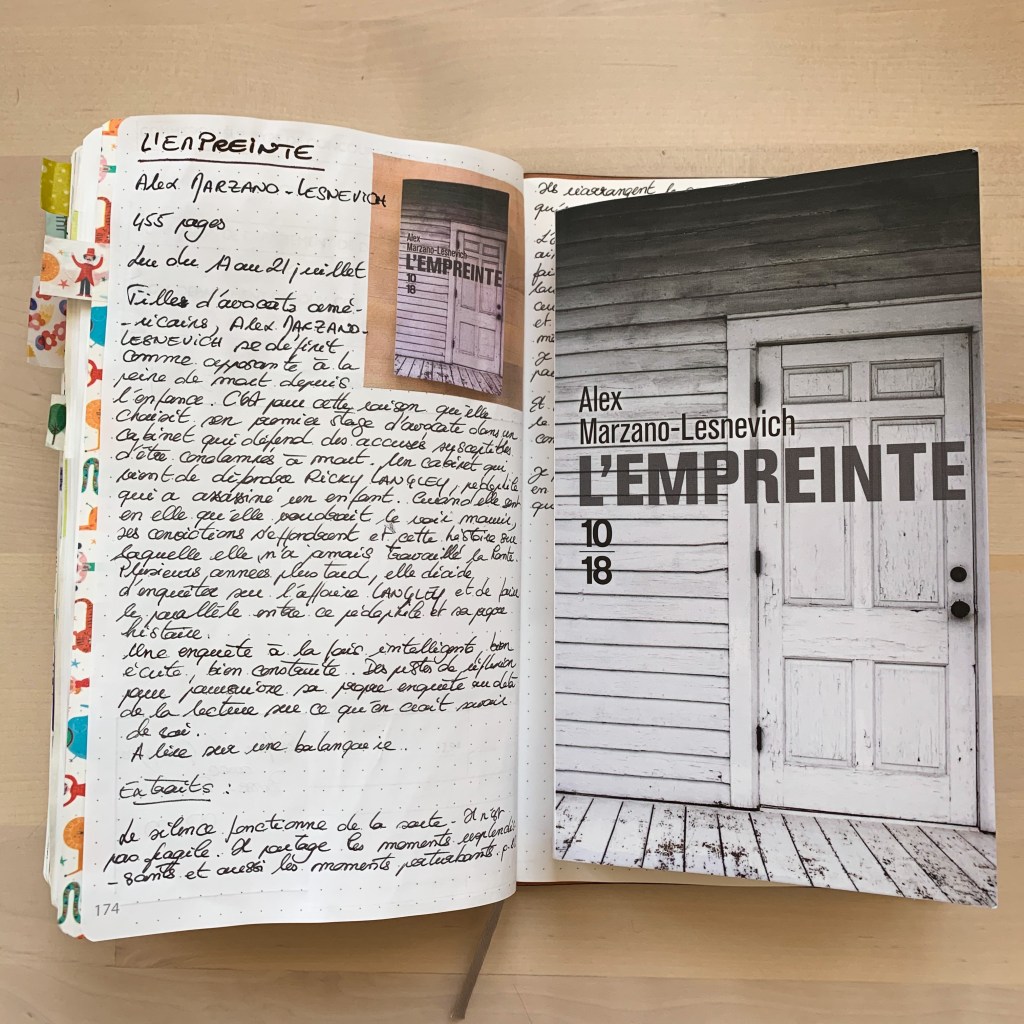 L'EMPREINTE
Alex MARZANO-LESNEVICH
455 pages
Lu du 17 au 21 juillet
Filles d'avocats amé-
-ricains, Alex MARZANO-
LESNEVICH se définit
comme opposante à la
peine de mort depuis
l'enfance. C'est pour cette raison qu'elle
choisit son premier stage d'avocate dans un
cabinet qui défend des accusés susceptibles
d'être condamnés à mort. Un cabinet qui
vient de défendre RICKY LANGLEY, pédophile
qui a assassiné un enfant. Quand elle sent
en elle qu'elle voudrait le voir mourir,
ses convictions s'effondrent et cette histoire sur
laquelle elle n'a jamais travaillé la hante.
Plusieurs années plus tard, elle décide
d'enquêter sur l'affaire LANGLEY et de faire
le parallèle entre ce pédophile et sa propre
histoire.
Une enquête à la fois intelligente, bien
écrite, bien construite. Des pistes de réflexion
pour poursuivre sa propre enquête au delà
de la lecture sur ce qu'on croit savoir
de soi.
A lire sur une balançoire..
Extraits :
Le silence fonctionne de la sorte - Il n'est
pas fragile. Il partage les moments resplendis
-sants et aussi les moments perturbants.
174
Alex
Marzano-Lesnevich
L'EMPREINTE
10
18
Ils réarrangent
Alex
Marzano-Lesnevich
L'EMPREINTE
10
18